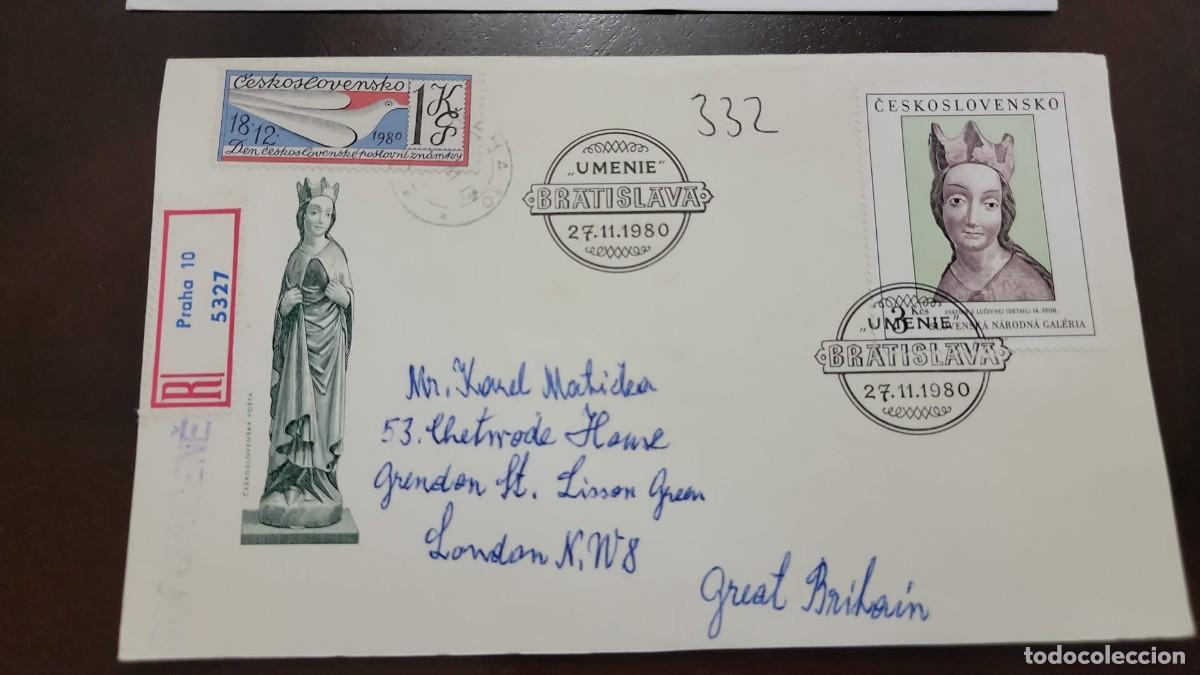 Československo
1 Kčs
18.12. 1980
Den československé poštovní známky
332
„UMENIE"
BRATISLAVA
27.11.1980
ČESKOSLOVENSKO
3 Kčs
LUČIVNEJ (DETAIL) 14. STOR.
SLOVENSKÁ NÁRODNÁ GALÉRIA
„UMENIE"
BRATISLAVA
27.11.1980
R
Praha 10
5327
ČESKOSLOVENSKÁ POŠTA
Mr. Karel
53. Chetwode House
Grendon St. Lisson Green
London N.W8
Great Britain
todocoleccion